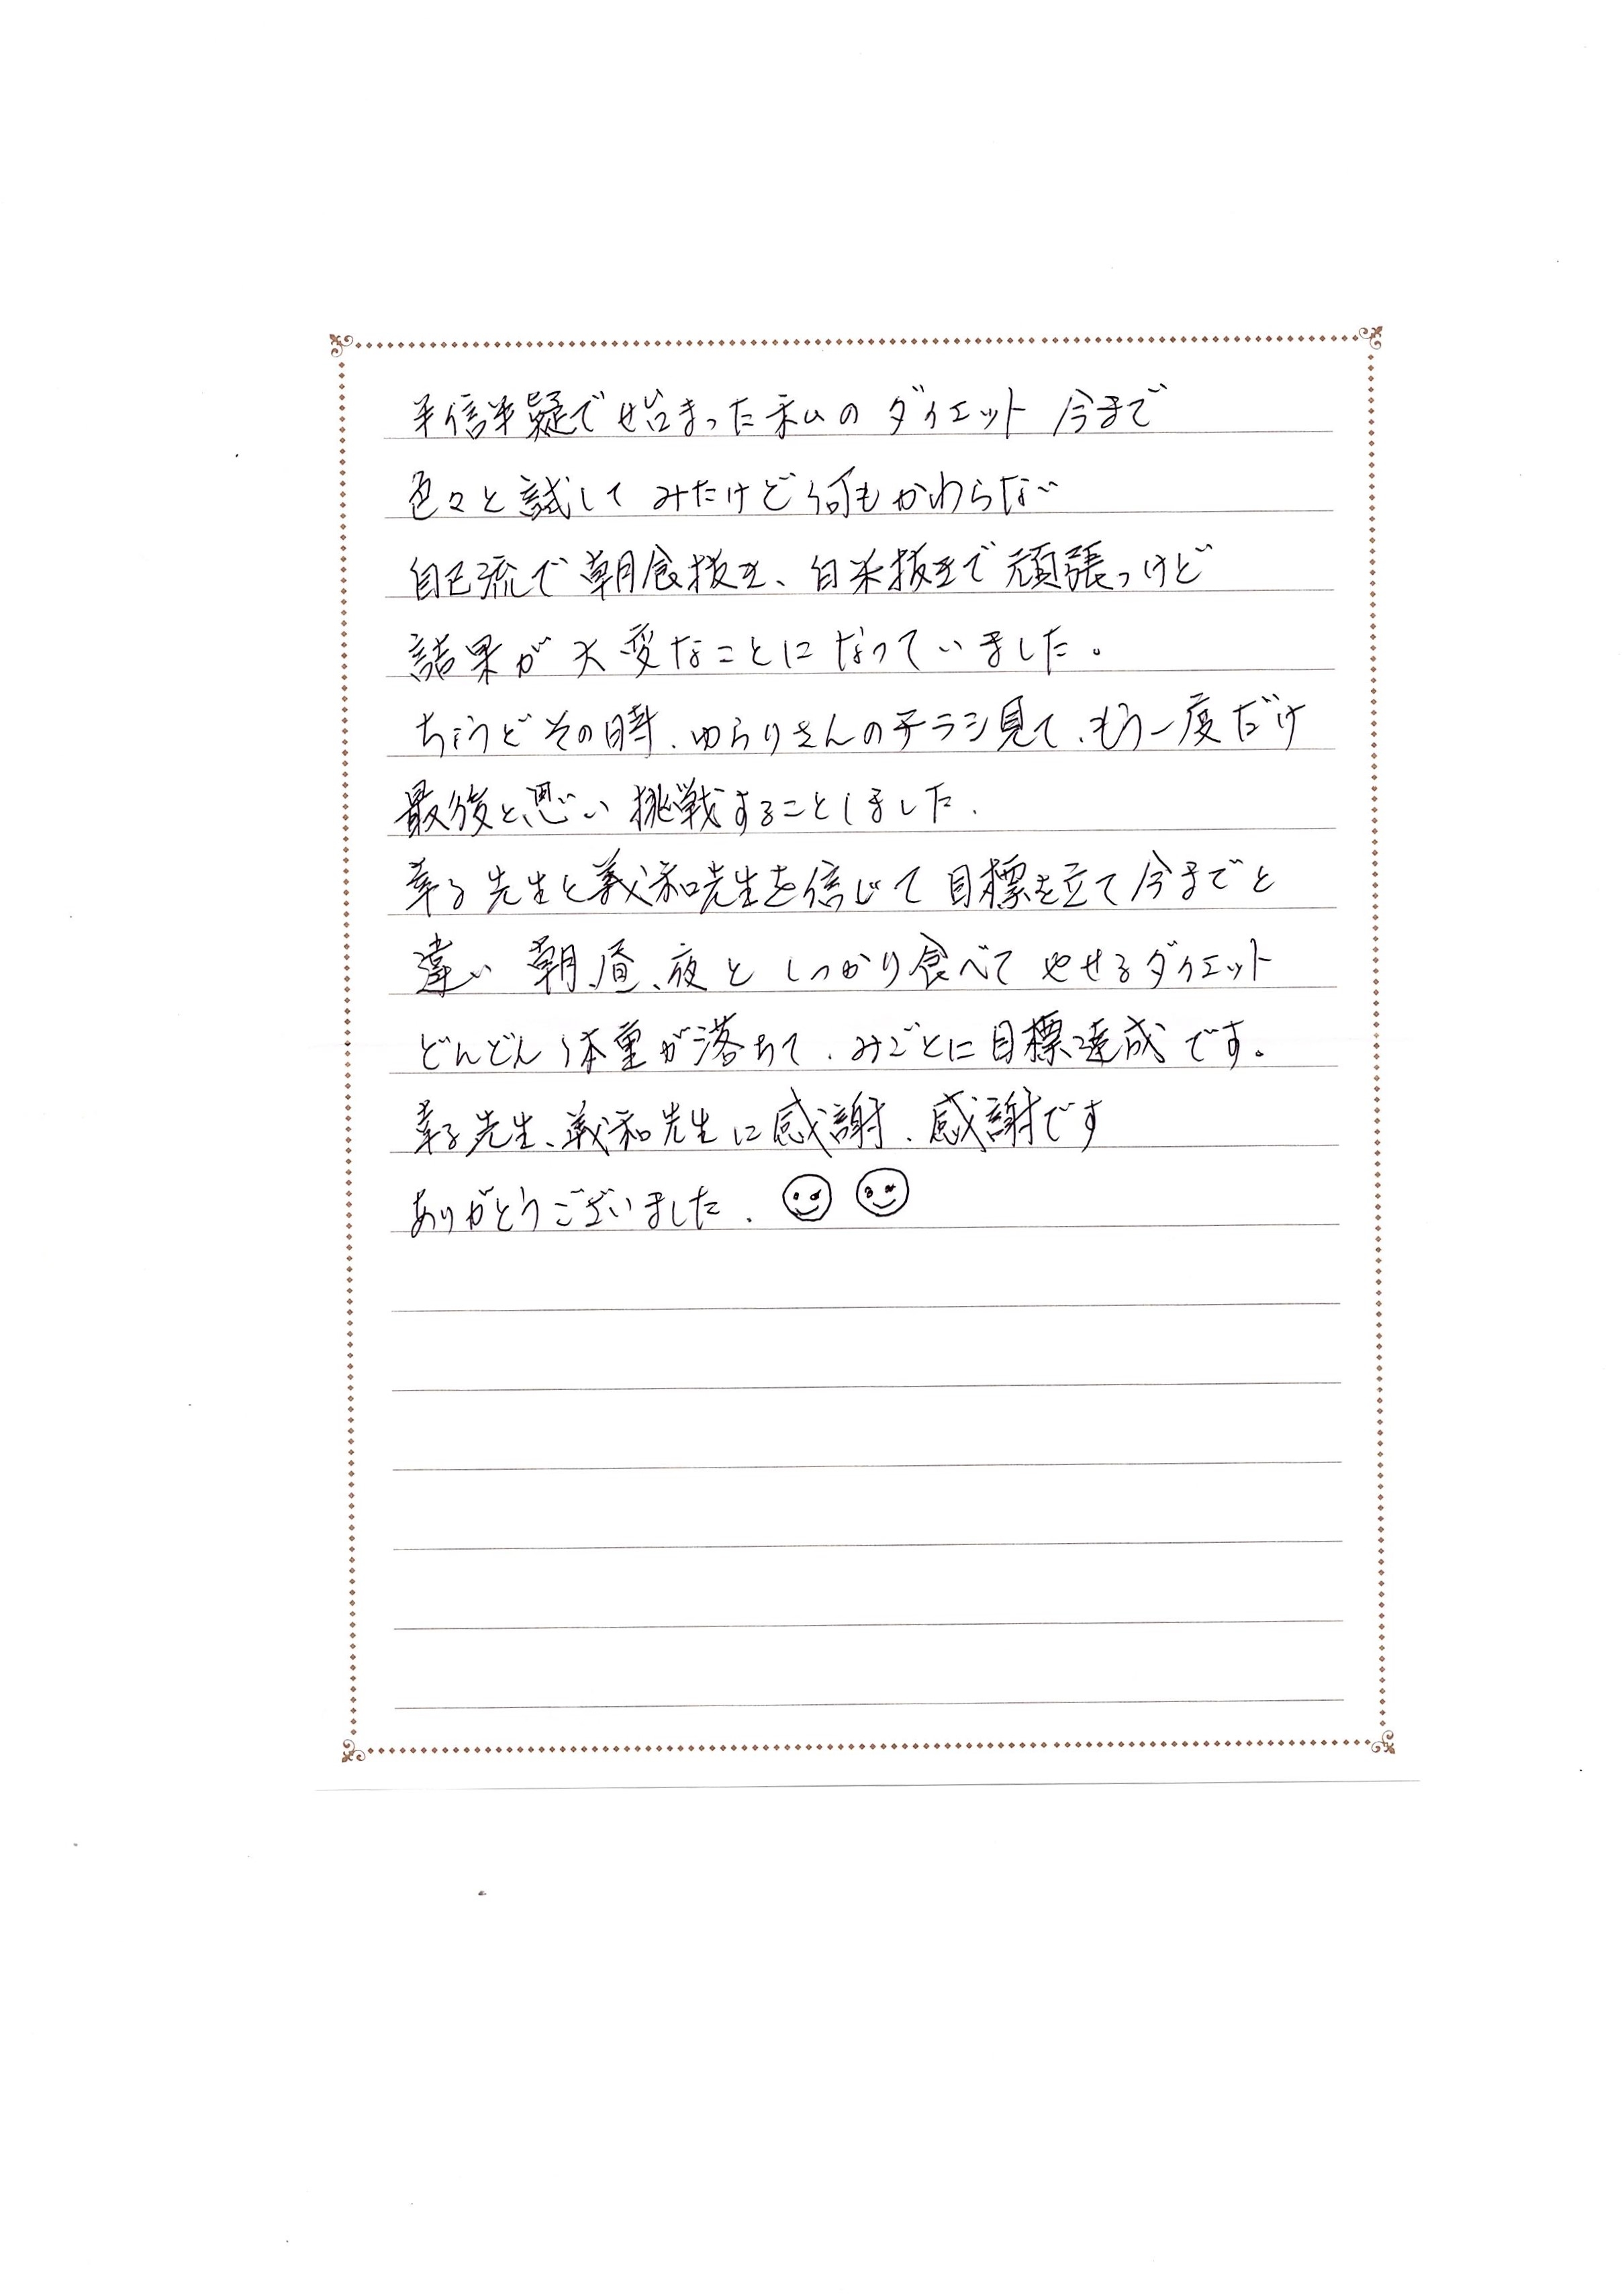 半信半疑で始まった私のダイエット 今まで
色々と試してみたけど何もかわらない
自己流で朝食抜き、白米抜きで頑張っけど
結果が大変なことになっていました。
ちょうどその時、ゆらりさんのチラシ見て、もう一度だけ
最後と思い挑戦することしました.
幸子先生と義和先生を信じて目標を立て今までと
違い 朝、昼、夜と しっかり食べて やせるダイエット
どんどん体重が落ちて、みごとに目標達成です。
幸子先生、義和先生に感謝、感謝です
ありがとうございました.